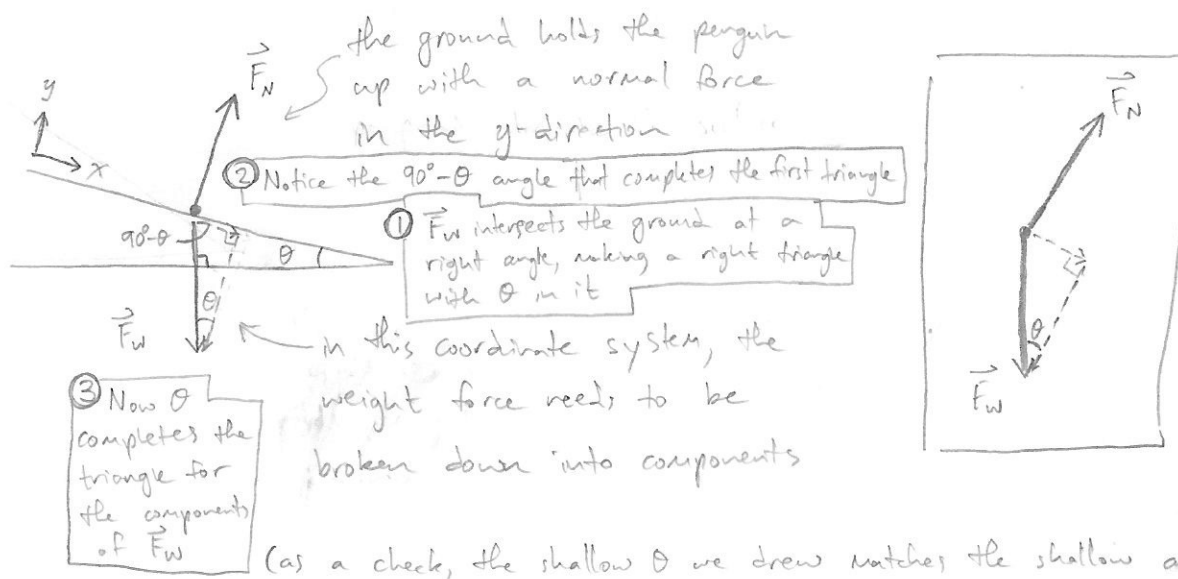 the ground holds the penguin
up with a normal force
in the y-direction
F_N
y
x
② Notice the 90°-θ angle that completes the first triangle
① F_W intersects the ground at a
right angle, making a right triangle
with θ in it
90°-θ
θ
θ
F_W
in this coordinate system, the
weight force needs to be
broken down into components
③ Now θ
completes the
triangle for
the components
of F_W
(as a check, the shallow θ we drew matches the shallow a
F_N
θ
F_W